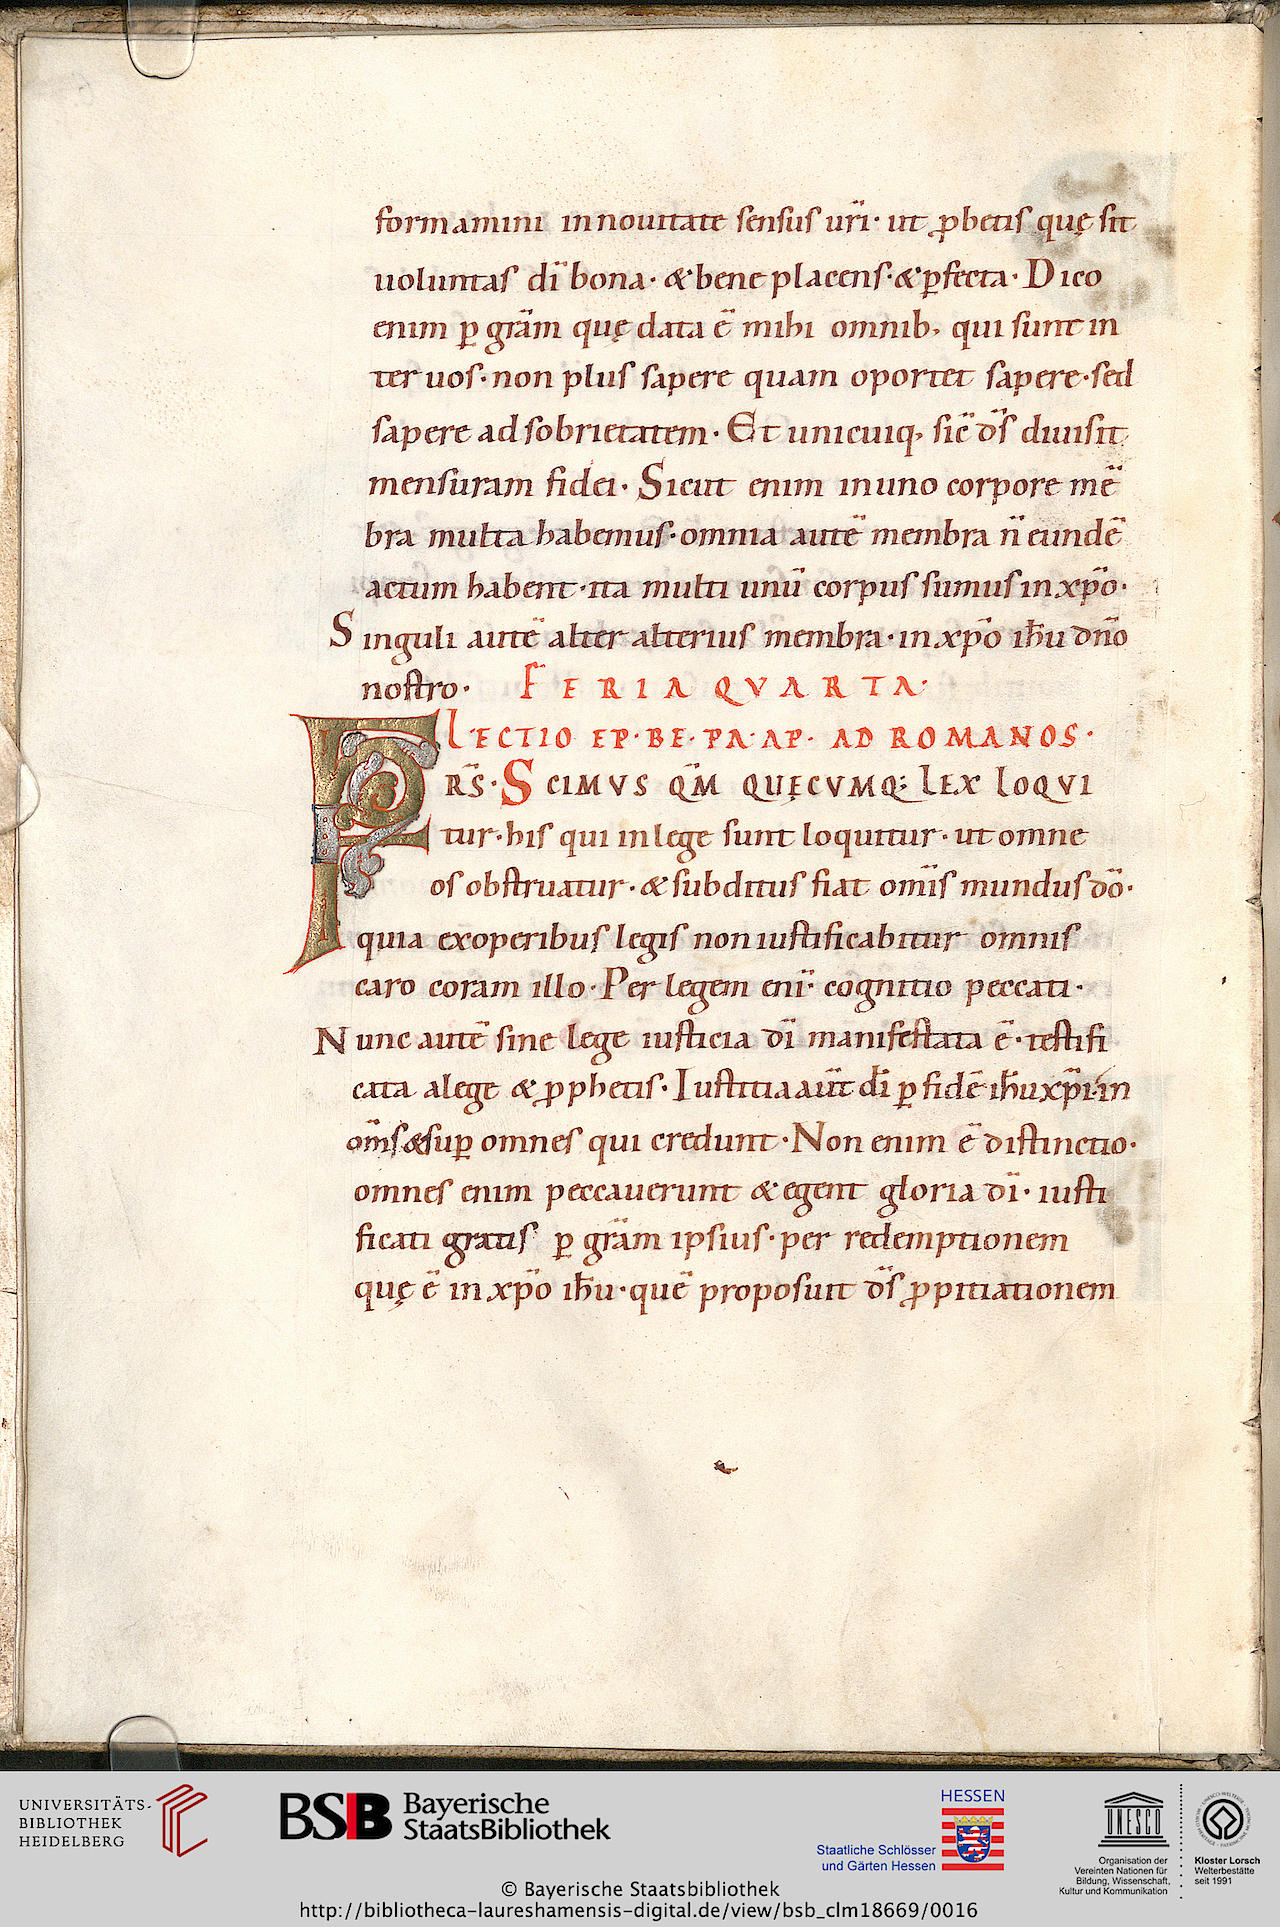 formamini in nouitate sensus ur̄i· ut ꝓbetis quę sit
uoluntas dī bona· & bene placens· & ꝑfecta· Dico
enim ꝑ grām quę data ē mihi omnib; qui sunt in
ter uos· non plus sapere quam oportet sapere· sed
sapere ad sobrietatem· Et unicuiq; sic̄ ds̄ diuisit
mensuram fidei· Sicut enim in uno corpore mē
bra multa habemus· omnia autē membra n̄ eundē
actum habent· ita multi unū corpus sumus in xp̄o·
Singuli autē alter alterius membra· in xp̄o ih̄u dn̄o
nostro· FERIA QVARTA·
LECTIO EP· BE· PA· AP· AD ROMANOS·
FRS̄· SCIMVS QM̄ QUĘCVMQ; LEX LOQVI
tur· his qui in lege sunt loquitur· ut omne
os obstruatur· & subditus fiat om̄is mundus dō·
quia ex operibus legis non iustificabitur omnis
caro coram illo· Per legem enī· cognitio peccati·
Nunc autē sine lege iusticia dī manifestata ē· testifi
cata a lege & ꝓphetis· Iustitia aūt dī ꝑ fidē ih̄u xp̄i· in
om̄s & suꝑ omnes qui credunt· Non enim ē distinctio·
omnes enim peccauerunt & egent gloria dī· iusti
ficati gratis ꝑ grām ipsius· per redemptionem
quę ē in xp̄o ih̄u· quē proposuit ds̄ ꝓpitiationem
UNIVERSITÄTS-
BIBLIOTHEK
HEIDELBERG
BSB Bayerische
StaatsBibliothek
HESSEN
Staatliche Schlösser
und Gärten Hessen
UNESCO
Organisation der
Vereinten Nationen für
Bildung, Wissenschaft,
Kultur und Kommunikation
Kloster Lorsch
Welterbestätte
seit 1991
© Bayerische Staatsbibliothek
http://bibliotheca-laureshamensis-digital.de/view/bsb_clm18669/0016